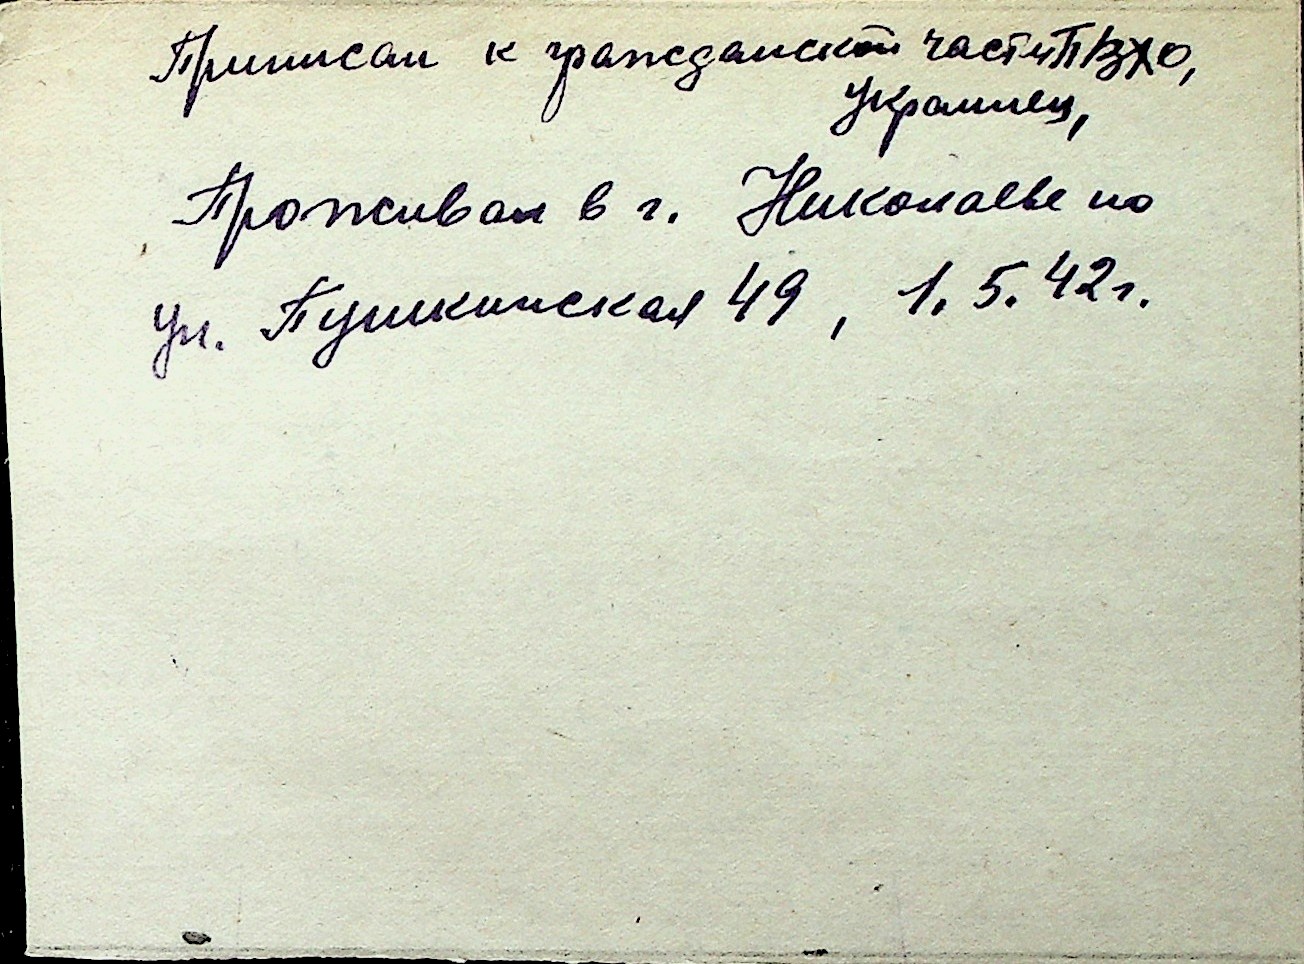 Приписан к гражданской части ПВХО,
украинец,
Проживал в г. Николаеве по
ул. Пушкинская 49, 1.5.42г.